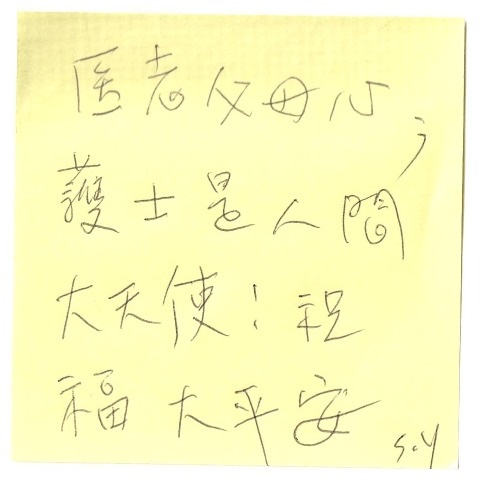 医者父母心，
護士是人間
大天使！祝
福大平安
S.Y